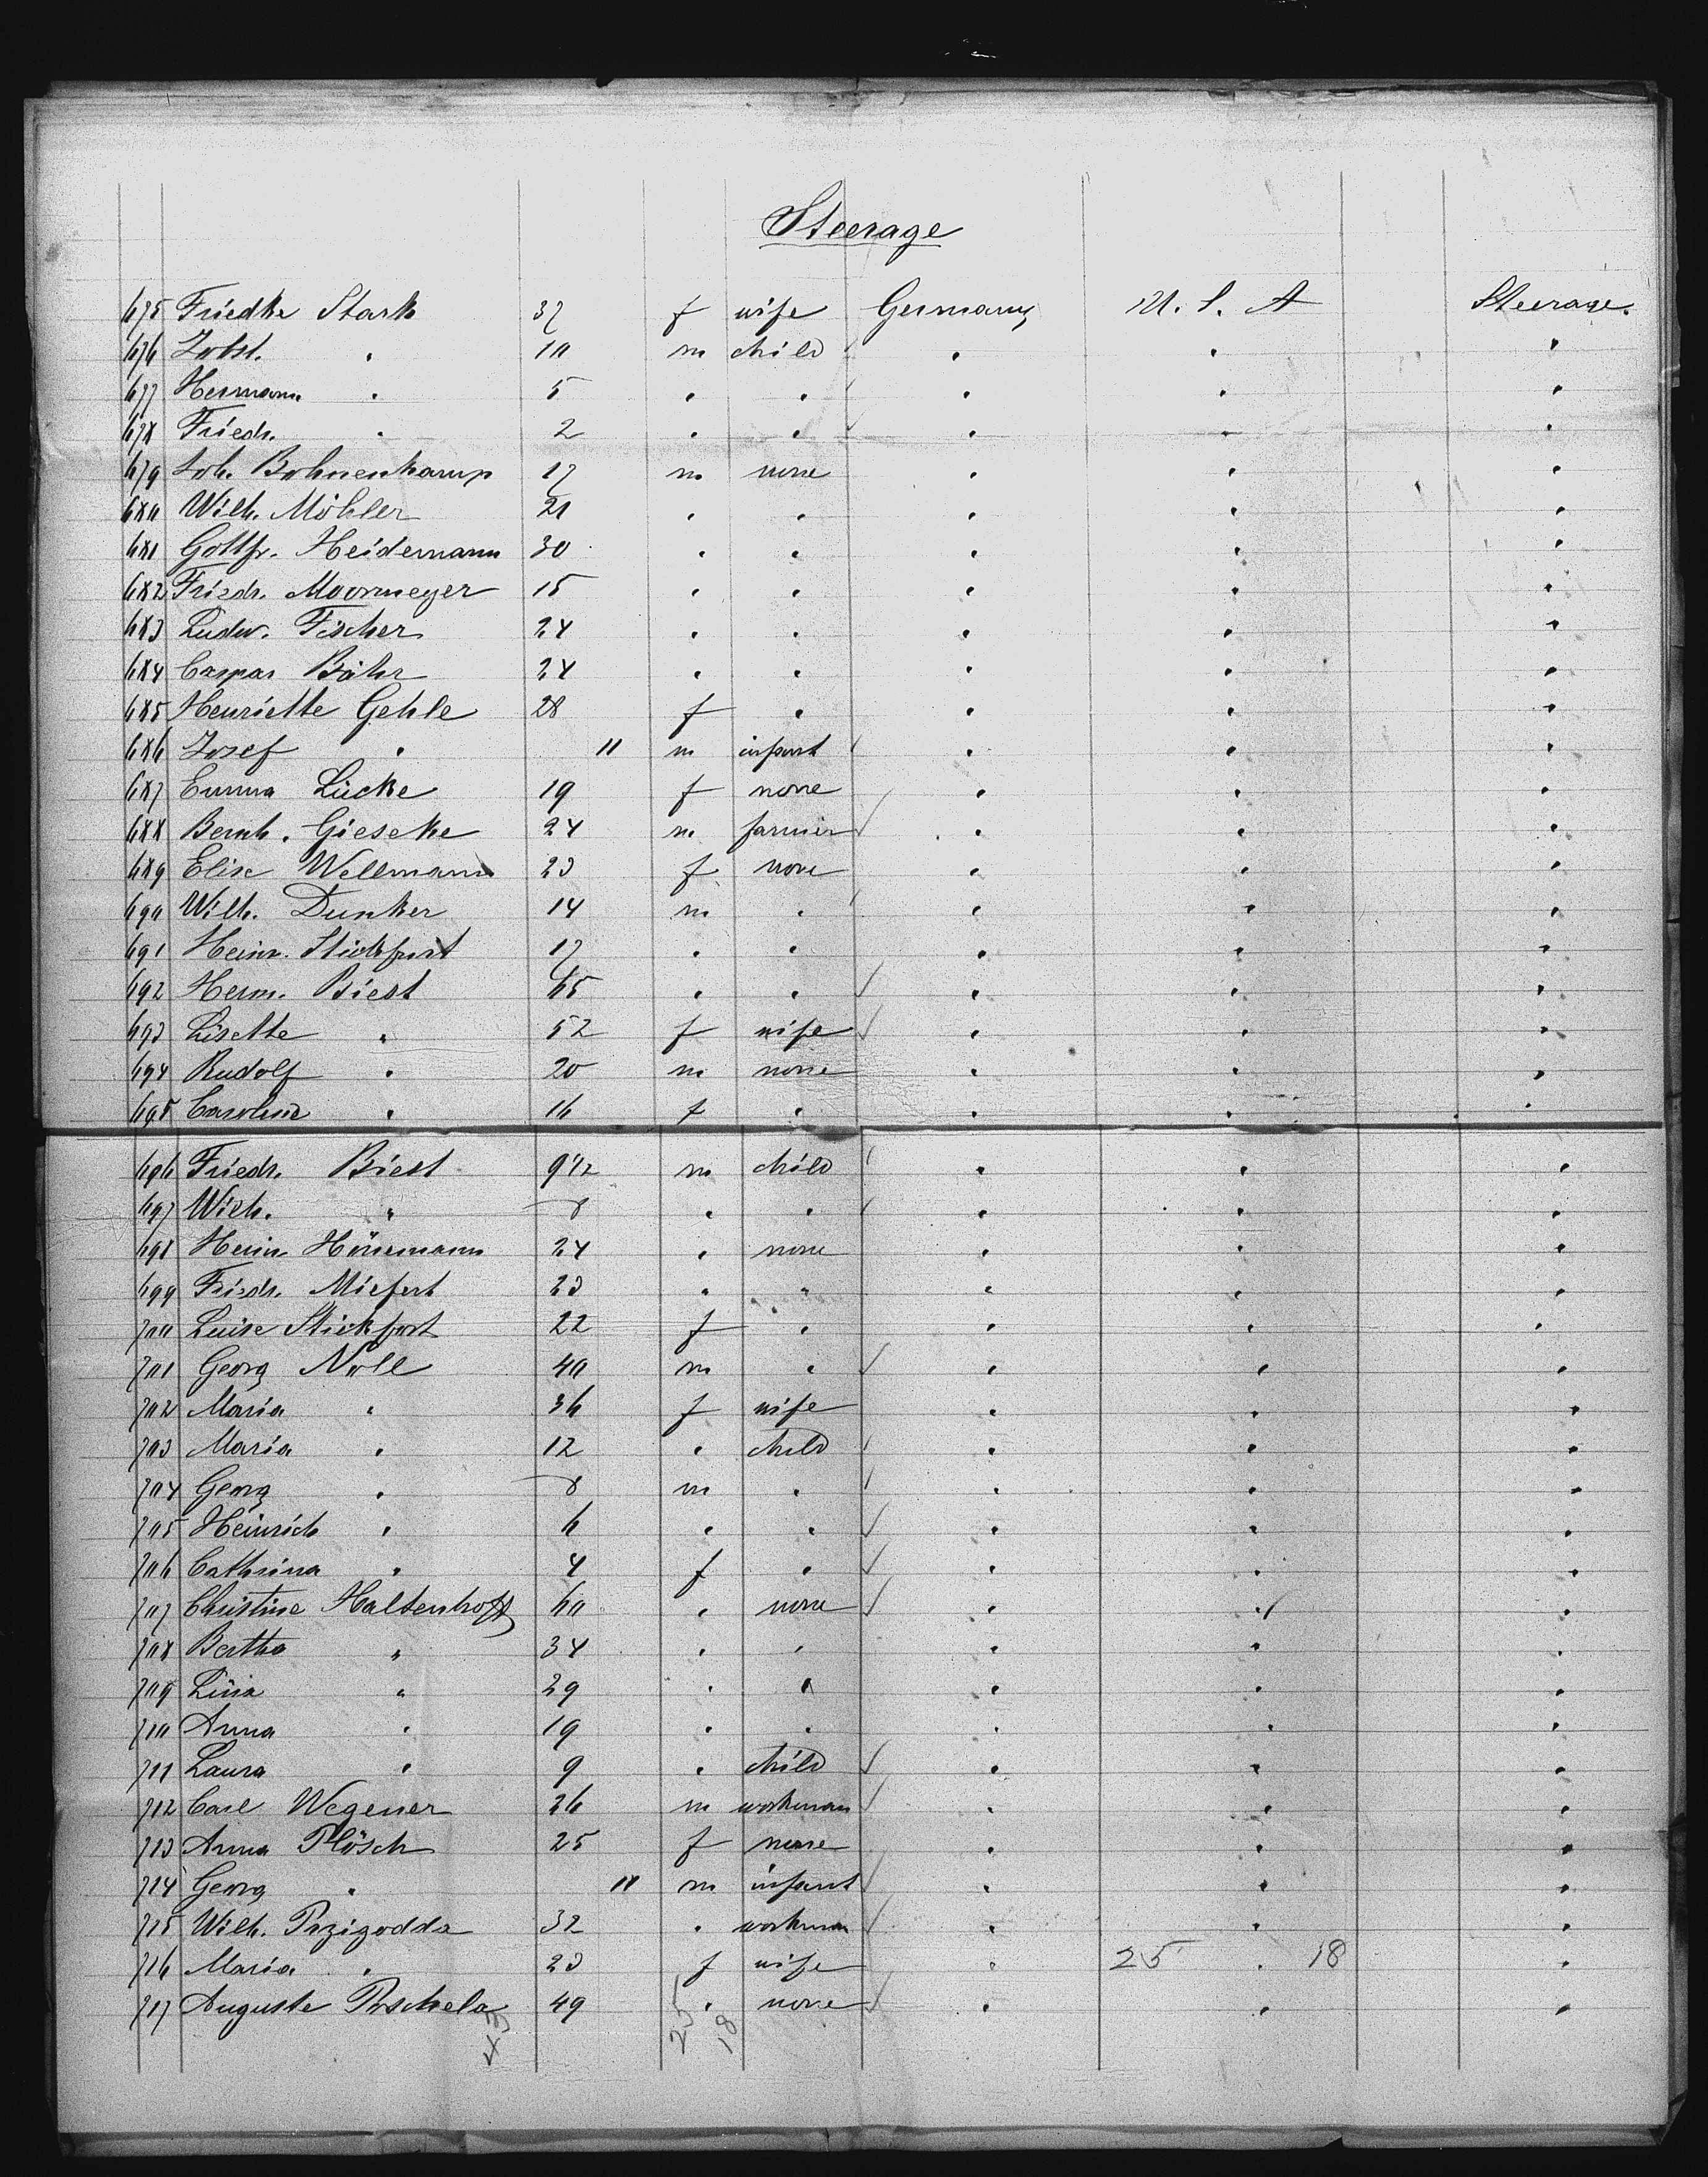 Steerage
675 Friedke Stark 37 f wife Germany U. S. A Steerage.
676 Jobst. " 10 m child " " "
677 Hermann. " 5 " " " " "
678 Friedr. " 2 " " " " "
679 Joh. Bohnenkamp 17 m none " " "
680 Wilh. Möhler 21 " " " " "
681 Gottfr. Heidemann 30 " " " " "
682 Friedr. Moormeyer 15 " " " " "
683 Ludw. Fischer 24 " " " " "
684 Caspar Bähr 24 " " " " "
685 Henriette Gehle 28 f " " " "
686 Josef " 11 m infant " " "
687 Emma Lücke 19 f none " " "
688 Bernh. Gieseke 24 m farmer " " "
689 Elise Wellmann 23 f none " " "
690 Wilh. Dunker 14 m " " " "
691 Heinr. Stickfort 17 " " " " "
692 Herm. Biest 65 " " " " "
693 Lisette " 52 f wife " " "
694 Rudolf " 20 m none " " "
695 Caroline " 16 f " " " "
696 Friedr. Biest 9 1/2 m child " " "
697 Wilh. " 8 " " " " "
698 Heinr. Hönemann 24 " none " " "
699 Friedr. Miefert 23 " " " " "
700 Luise Stickfort 22 f " " " "
701 Georg Noll 40 m " " " "
702 Maria " 36 f wife " " "
703 Maria " 12 " child " " "
704 Georg " 8 m " " " "
705 Heinrich " 6 " " " " "
706 Cathrina " 4 f " " " "
707 Christine Haltenhoff 60 " none " " "
708 Bertha " 34 " " " " "
709 Lina " 29 " " " " "
710 Anna " 19 " " " " "
711 Laura " 9 " child " " "
712 Carl Wegener 26 m workman " " "
713 Anna Plösch 25 f none " " "
714 Georg " 11 m infant " " "
715 Wilh. Przigodda 32 " workman " " "
716 Maria " 23 f wife " 25 " 18 "
717 Auguste Poschela 49 " none " " "
43 25 18